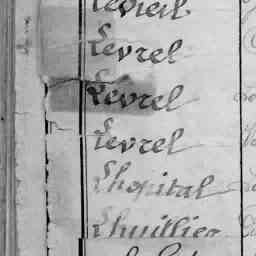 Levrel
Levrel
Levrel
Lhopital
Lhuillier